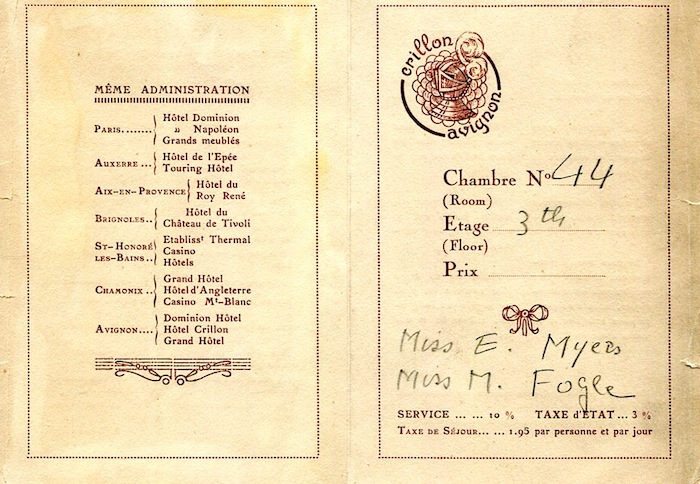 MÊME ADMINISTRATION
PARIS........ Hôtel Dominion
» Napoléon
Grands meublés
AUXERRE ... Hôtel de l'Epée
Touring Hôtel
AIX-EN-PROVENCE Hôtel du
Roy René
BRIGNOLES.. Hôtel du
Château de Tivoli
ST-HONORÉ LES-BAINS.. Etablisst Thermal
Casino
Hôtels
CHAMONIX .. Grand Hôtel
Hôtel d'Angleterre
Casino Mt-Blanc
AVIGNON.... Dominion Hôtel
Hôtel Crillon
Grand Hôtel
crillon
avignon
Chambre No 44
(Room)
Etage 3th
(Floor)
Prix
Miss E. Myers
Miss M. Fogle
SERVICE ... ... 10 % TAXE d'ETAT ... 3 %
TAXE DE SÉJOUR... ... 1.95 par personne et par jour